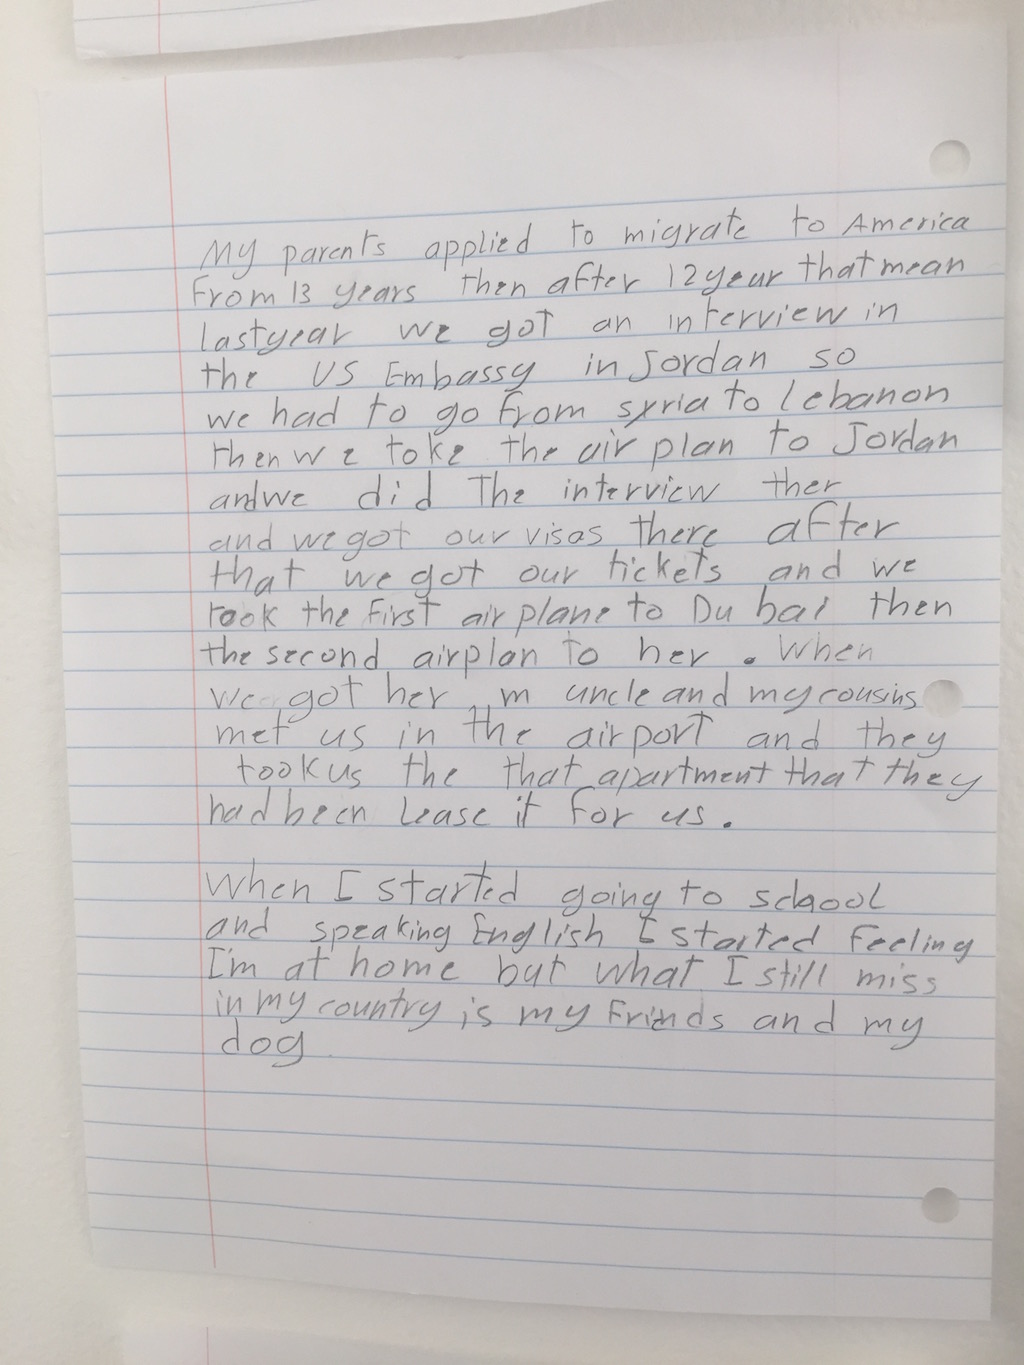 My parents applied to migrate to America
From 13 years then after 12 year that mean
last year we got an interview in
the US Embassy in Jordan so
we had to go from syria to lebanon
then we toke the air plan to Jordan
and we did The interview ther
and we got our visas there after
that we got our tickets and we
took the first air plane to Du bai then
the second airplan to her . When
we got her m uncle and my cousins
met us in the airport and they
took us the that apartment that they
had been Lease it for us .
When I started going to school
and speaking English I started Feeling
I'm at home but what I still miss
in my country is my Frinds and my
dog